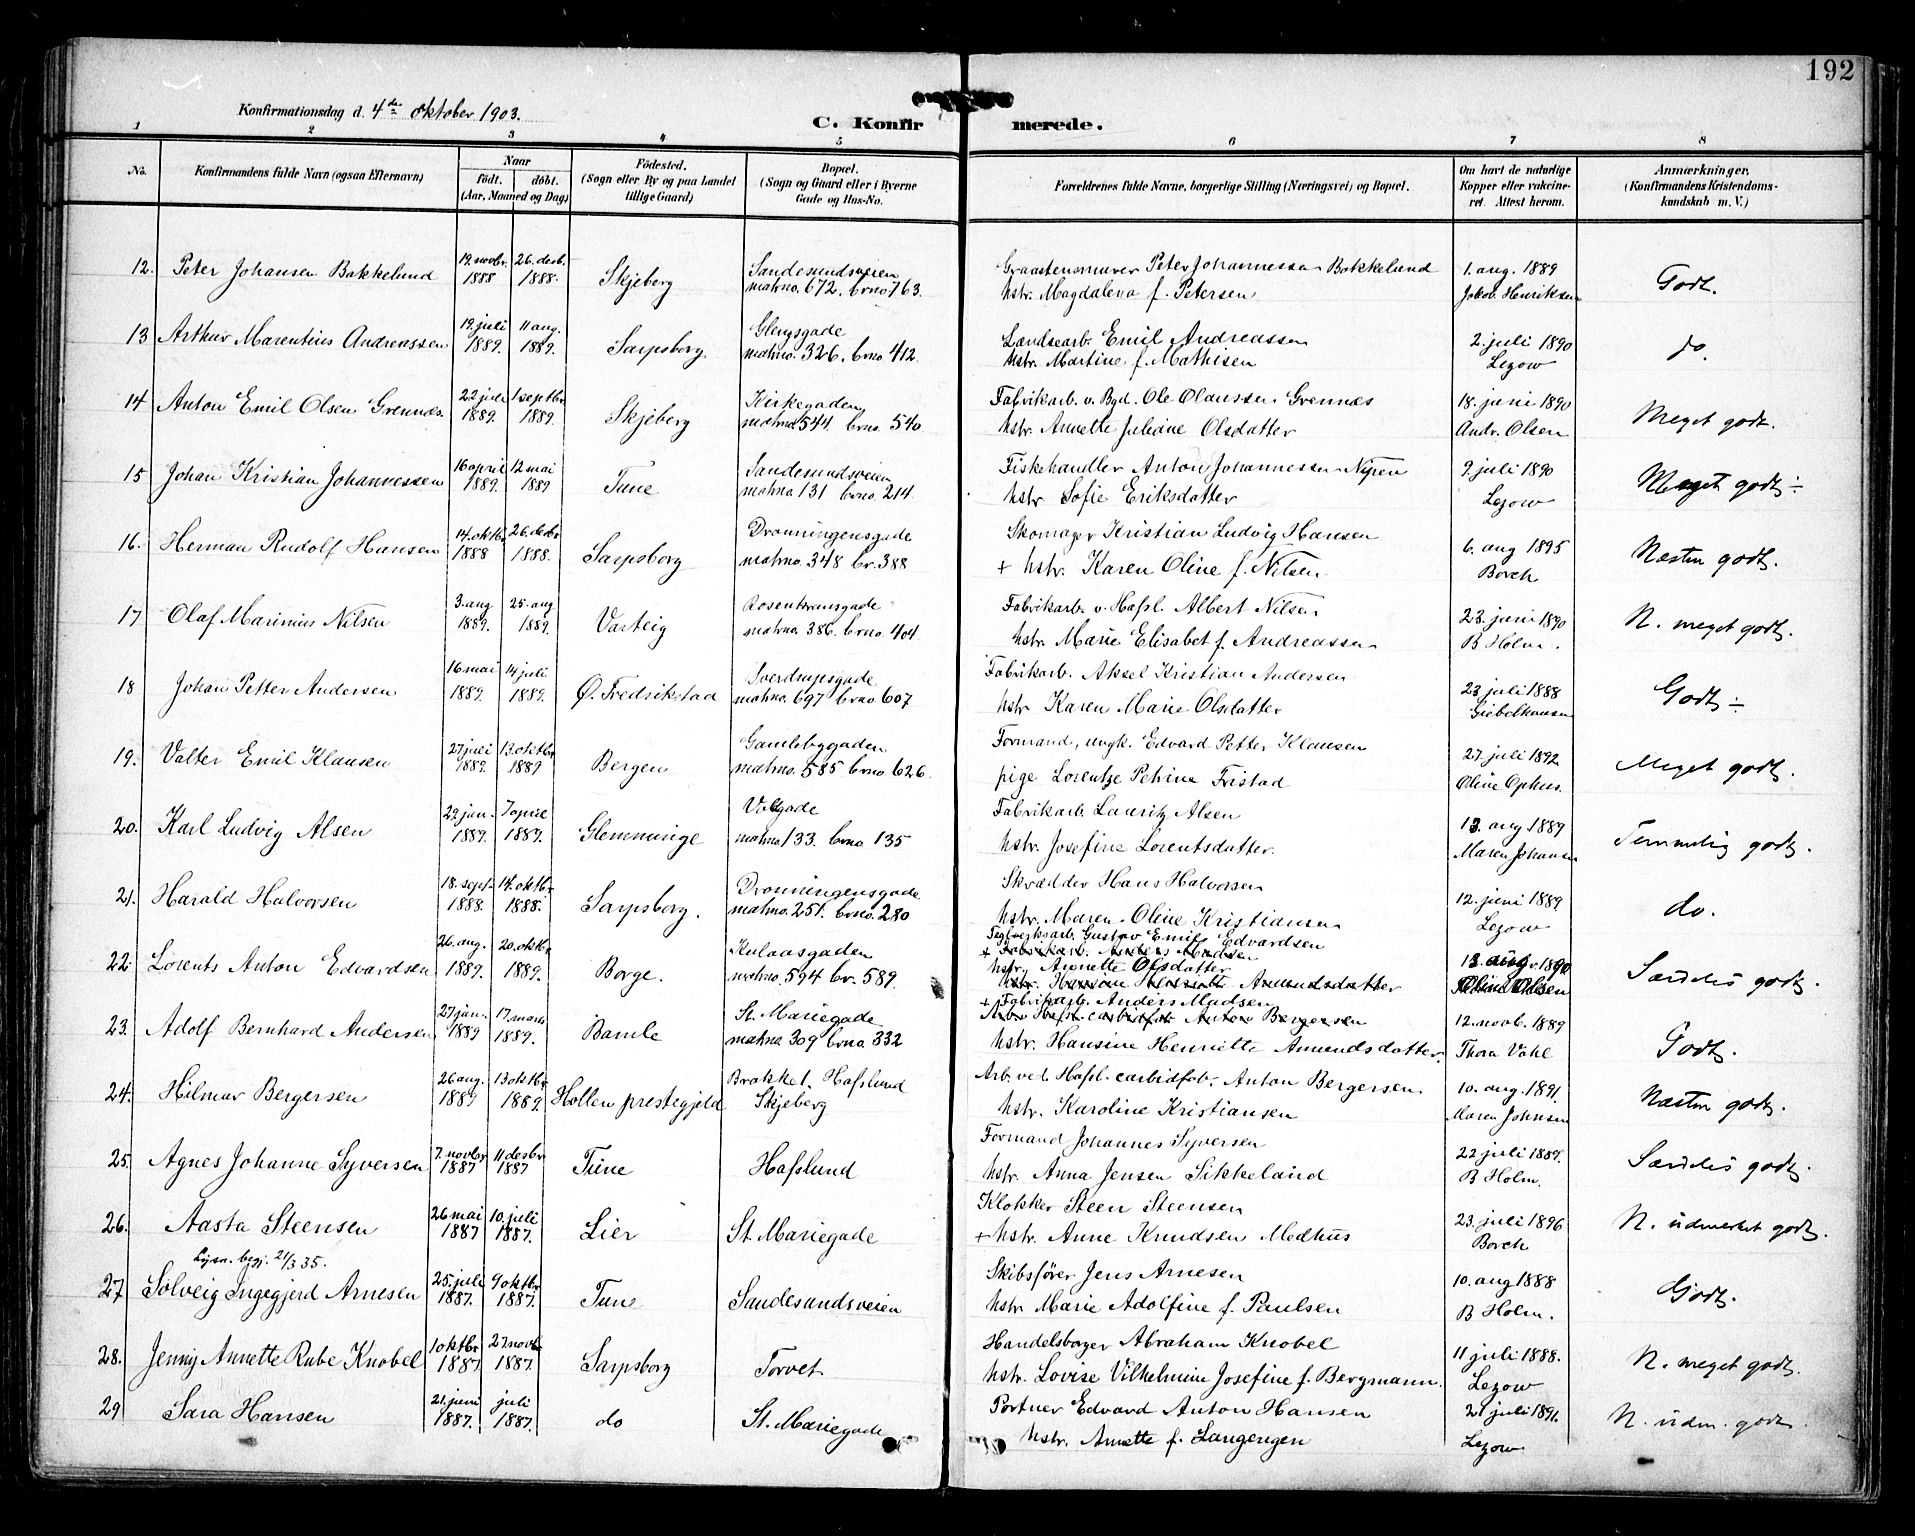 192
Konfirmationsdag d. 4de oktober 1903.
C. Konfirmerede.
1 2 3 4 5 6 7 8
No. Konfirmandens fulde Navn (ogsaa Efternavn) Naar födt. döbt. (Aar, Maaned og Dag) Födested. (Sogn eller By og paa Landet tillige Gaard) Bopæl. (Sogn og Gaard eller i Byerne Gade og Hus-No. Forældrenes fulde Navne, borgerlige Stilling (Næringsvei) og Bopæl. Om havt de naturlige Kopper eller vakcineret. Attest herom. Anmærkninger. (Konfirmandens Kristendomskundskab m. V.)
12. Peter Johansen Bakkelund 19. novbr. 1888 26. desb. 1888. Skjeberg Sandesundsveien matrno. 672. brno 763. Graastensmurer Peter Johannessen Bakkelund hstr. Magdalena f. Petersen 1. aug. 1889 Jakob Henriksen Godt.
13 Arthur Marentius Andreassen 19. juli 1889. 11 aug. 1889. Sarpsborg. Glengsgade matrno. 326. brno 412. Landsearb. Emil Andreassen hstr. Martine f. Mathisen 2. juli 1890 Lezow do.
14 Anton Emil Olsen Grennæs. 22 juli 1889. 1 septbr 1889. Skjeberg Kirkegaden matrno 544 brno. 540 Fabrikarb. v. Bgd. Ole Olaussen Grennæs hstr. Annette Juliane Olsdatter 18. juni 1890 Andr. Olsen Meget godt.
15 Johan Kristian Johannessen 16 april 1889. 12 mai 1889 Tune Sandesundsveien matrno 131 brno. 214 Fiskehandler Anton Johannessen Nipen hstr Sofie Eriksdatter 9. juli 1890 Lezow Meget godt ÷
16. Herman Rudolf Hansen 14. oktbr 1888 26. desbr 1888. Sarpsborg Dronningensgade matrno. 348 br. 388 Skomager Kristian Ludvig Hansen + hstr. Karen Oline f. Nilsen. 6. aug 1895 Borch Næsten godt.
17 Olaf Marinius Nilsen 3. aug 1889. 25. aug 1889. Varteig Rosenkransgade matrno. 386. brno 404 Fabrikarb. v. Hafsl. Albert Nilsen hstr. Marie Elisabet f. Andreassen 23. juni 1890 B Holm. N. meget godt.
18 Johan Petter Andersen 16 mai 1889. 14 juli 1889. Ø. Fredrikstad Sverdrupsgade matrno 697 brno 607 Fabrikarb. Aksel Kristian Andersen hstr Karen Marie Olsdatter 23 juli 1888 Giebelhausen Godt ÷
19. Valter Emil Klausen 27 juli 1889. 13. oktbr 1889 Bergen Gamlebygaden matrno. 585 brno 626. Formand, ungk. Edvard Petter Klausen pige Lorentze Petrine Fristad 27. juli 1892 Oline Ophus. Meget godt.
20. Karl Ludvig Alsen 29. jan. 1889. 7 april 1889. Glemminge Volgade matrno 133. brno 135 Fabrikarb. Lauritz Alsen hstr. Josefine Lorentsdatter. 13. aug 1889 Maren Johansen Temmelig godt.
21. Harald Halvorsen 18. sept. 1888. 14. oktbr 1888. Sarpsborg. Dronningensgade matrno. 251. brno. 280 Skrædder Hans Halvorsen hstr. Maren Oline Kristiansen 12. juni 1889. Lezow do.
22 Lorents Anton Edvardsen 26. aug. 1889. 20. oktbr 1889. Borge. Kulaasgaden matrno. 594 br. 589. Teglverksarb. Gustav Emil Edvardsen + Fabrikarb. Anders Madsen hstr. Annette Olsdatter hstr. Hansine Henriette Amundsdatter 13 aug 1890 Oline Olsen Særdeles godt.
23. Adolf Bernhard Andersen 27 jan. 1889 17. marts 1889. Bamle St. Mariegade matrno 309 brno 332 + Fabrikarb. Anders Madsen Arb. Hafsl carbidfab. Anton Bergersen hstr. Hansine Henriette Amundsdatter. 12. novb. 1889 Thora Vahl Godt.
24. Hilmar Bergersen 26 aug. 1889 13 oktbr 1889. Hollen prestegjeld Brakkel. Hafslund Skjeberg Arb. ved Hafsl. carbidfab. Anton Bergersen hstr. Karoline Kristiansen 10. aug. 1891. Maren Johnsen Næsten godt.
25. Agnes Johanne Syversen 7. novbr 1887 11 desbr 1887 Tune Hafslund Formand Johannes Syversen hstr. Anna Jensen Sikkeland 22 juli 1889. B Holm. Særdeles godt.
26. Aasta Steensen 26 mai 1887 10. juli 1887. Lier St. Mariegade Klokker Steen Steensen + hstr. Anne Knudsen Medhus 23. juli 1896 Borch N. udmerket godt.
Lysn. begj. 21/3 35.
27 Solveig Ingegjerd Arnesen 25. juli 1887. 9 oktbr 1887. Tune Sandesundsveien Skibsfører Jens Arnesen hstr Marie Adolfine f. Paulsen 10. aug 1888 B Holm. Godt.
28. Jenny Annette Rube Knobel 1 oktbr 1887 27 novbr 1887. Sarpsborg Torvet Handelsborger Abraham Knobel hstr. Lovise Vilhelmine Josefine f. Bergmann. 11 juli 1888. Lezow N. meget godt.
29 Sara Hansen 21. juni 1887. juli 1887. do St. Mariegade Portner Edvard Anton Hansen hstr. Annette f. Langengen 21 juli 1891. Lezow N. udm. godt.